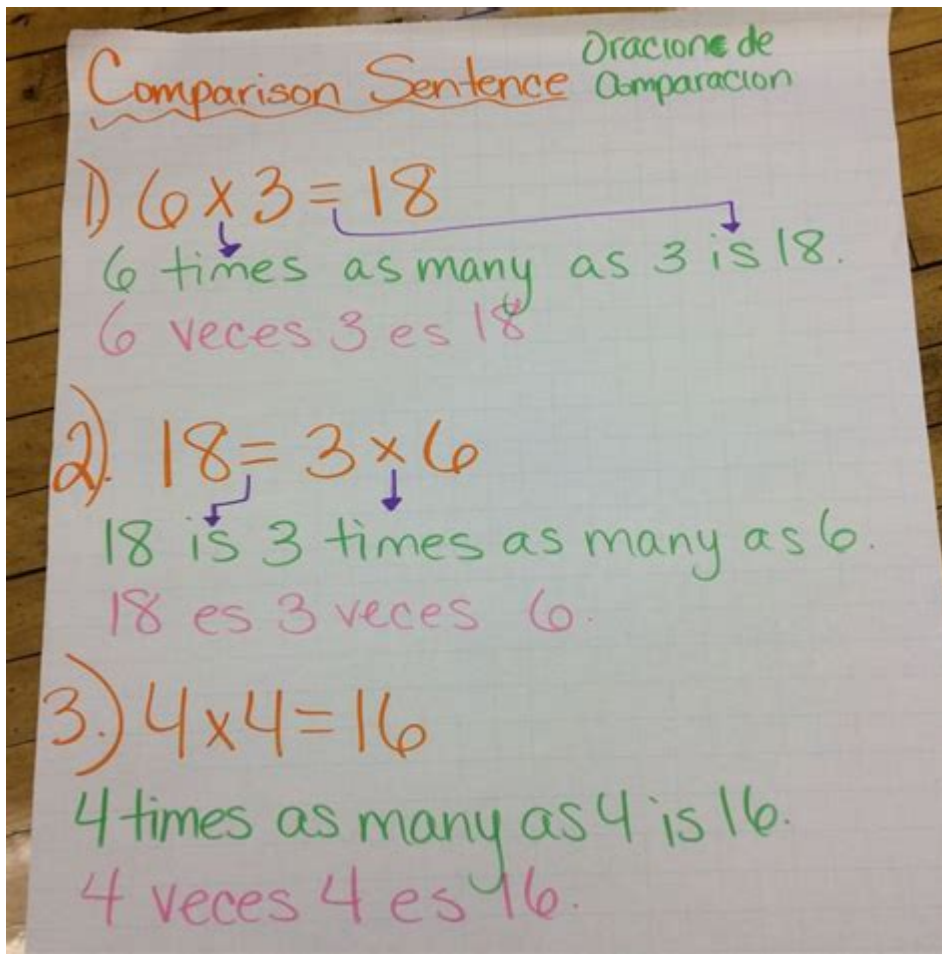 Comparison Sentence
Oracione de
Comparacion
1) 6 x 3 = 18
6 times as many as 3 is 18.
6 veces 3 es 18
2). 18 = 3 x 6
18 is 3 times as many as 6.
18 es 3 veces 6.
3.) 4 x 4 = 16
4 times as many as 4 is 16.
4 veces 4 es 16.